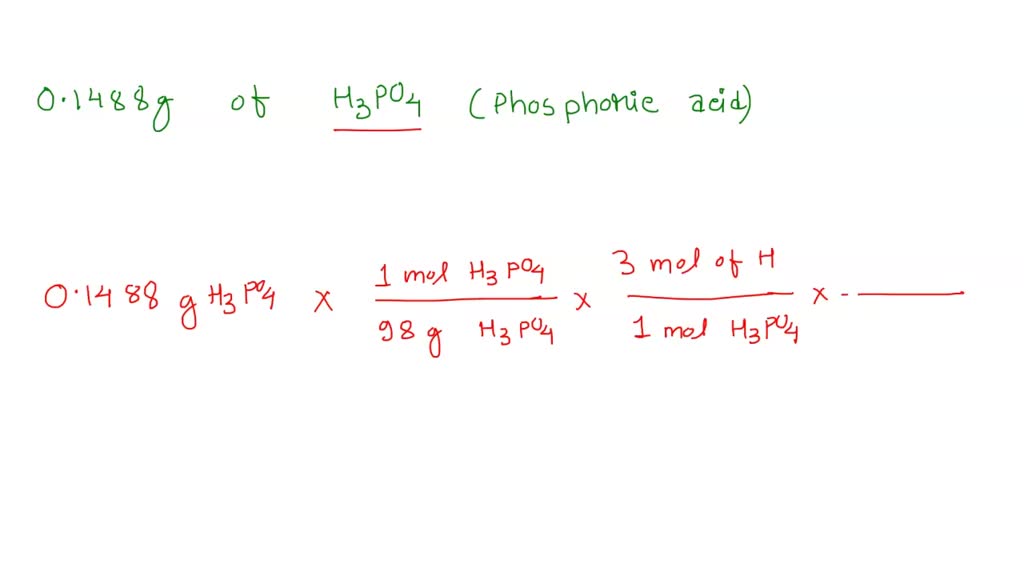 0.1488g of H3PO4 (Phosphoric acid)
0.1488 g H3PO4 x 1 mol H3PO4 / 98 g H3PO4 x 3 mol of H / 1 mol H3PO4 x